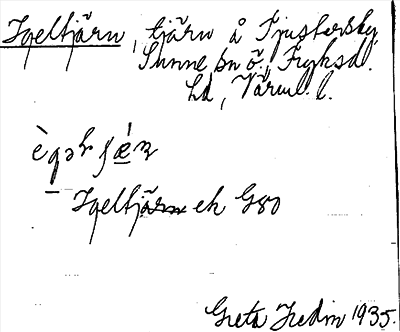 Igeltjärn, tjärn å Tjustersby,
Sunne sn ö., Fryksd.
hd, Värml. l.
ègəl ʃæ̀ɳ
Igeltjärn ek G80
Greta Hedin 1935.